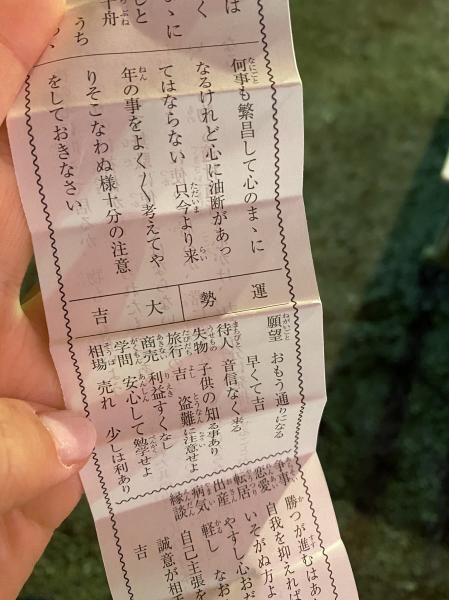 は
く
まゝに
しと
千舟
うち
何事も繁昌して心のまゝに
なるけれど心に油断があっ
てはならない 只今より来
年の事をよく／＼考えてや
りそこなわぬ様十分の注意
をしておきなさい
運勢
大吉
願望 おもう通りになる
早くて吉
待人 音信なく来る
失物 子供の知る事あり
旅行 吉 盗難に注意せよ
商売 利益すくなし
学問 安心して勉学せよ
相場 売れ 少しは利あり
争事 勝つが進むはあ
恋愛 自我を抑えれば
転居 いそがぬ方よ
出産 やすし心おだ
病気 軽し なお
縁談 自己主張を
誠意が相
吉